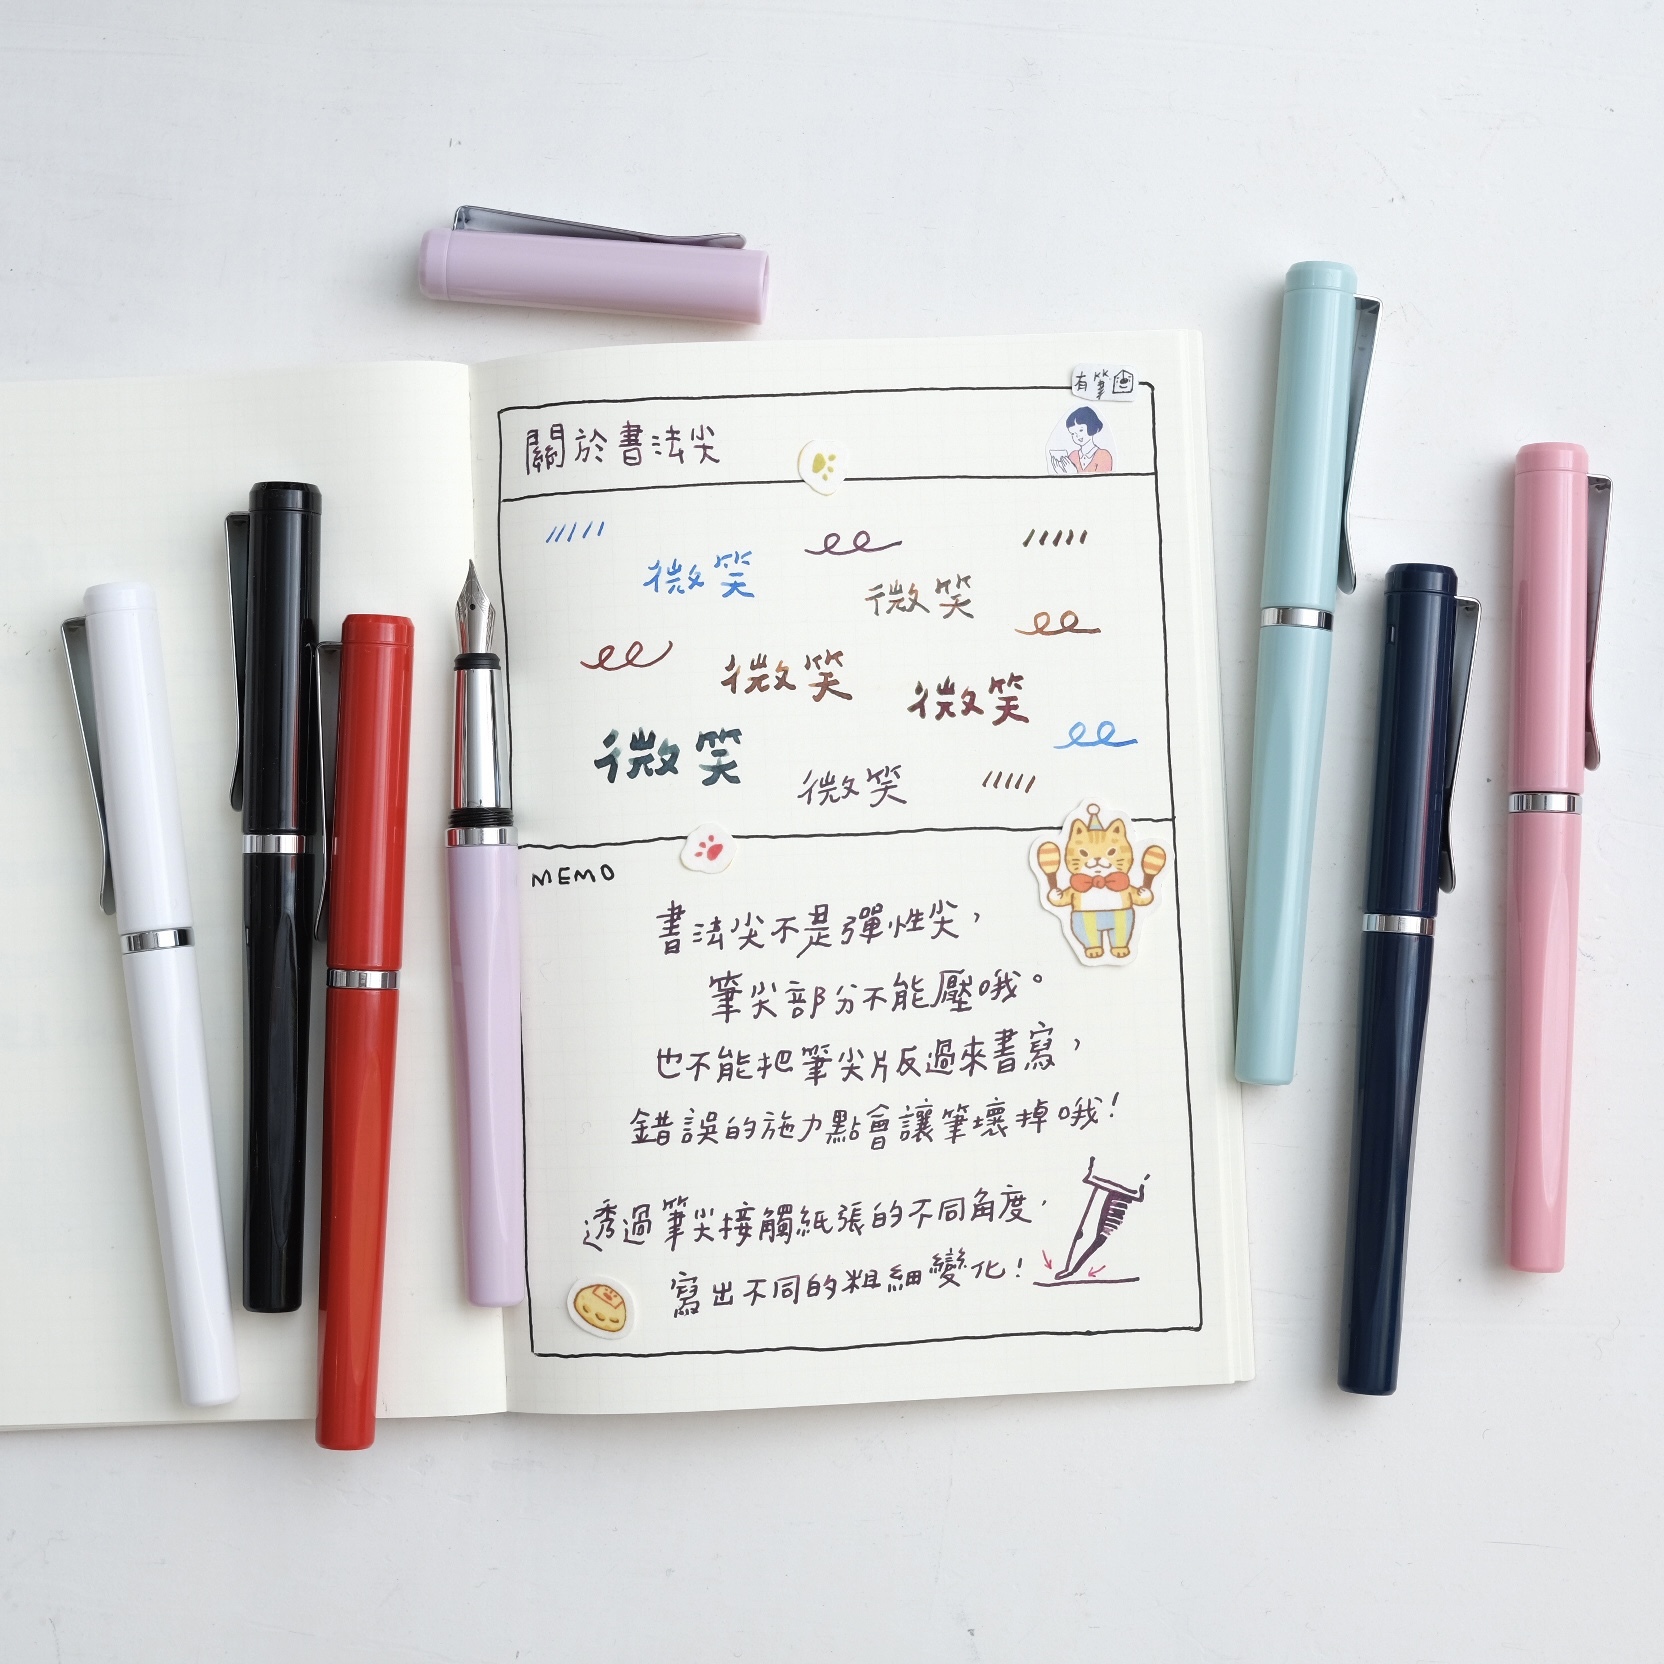 有筆
關於書法尖
微笑
微笑
微笑
微笑
微笑
微笑
MEMO
書法尖不是彈性尖，
筆尖部分不能壓哦。
也不能把筆尖片反過來書寫，
錯誤的施力點會讓筆壞掉哦！
透過筆尖接觸紙張的不同角度，
寫出不同的粗細變化！